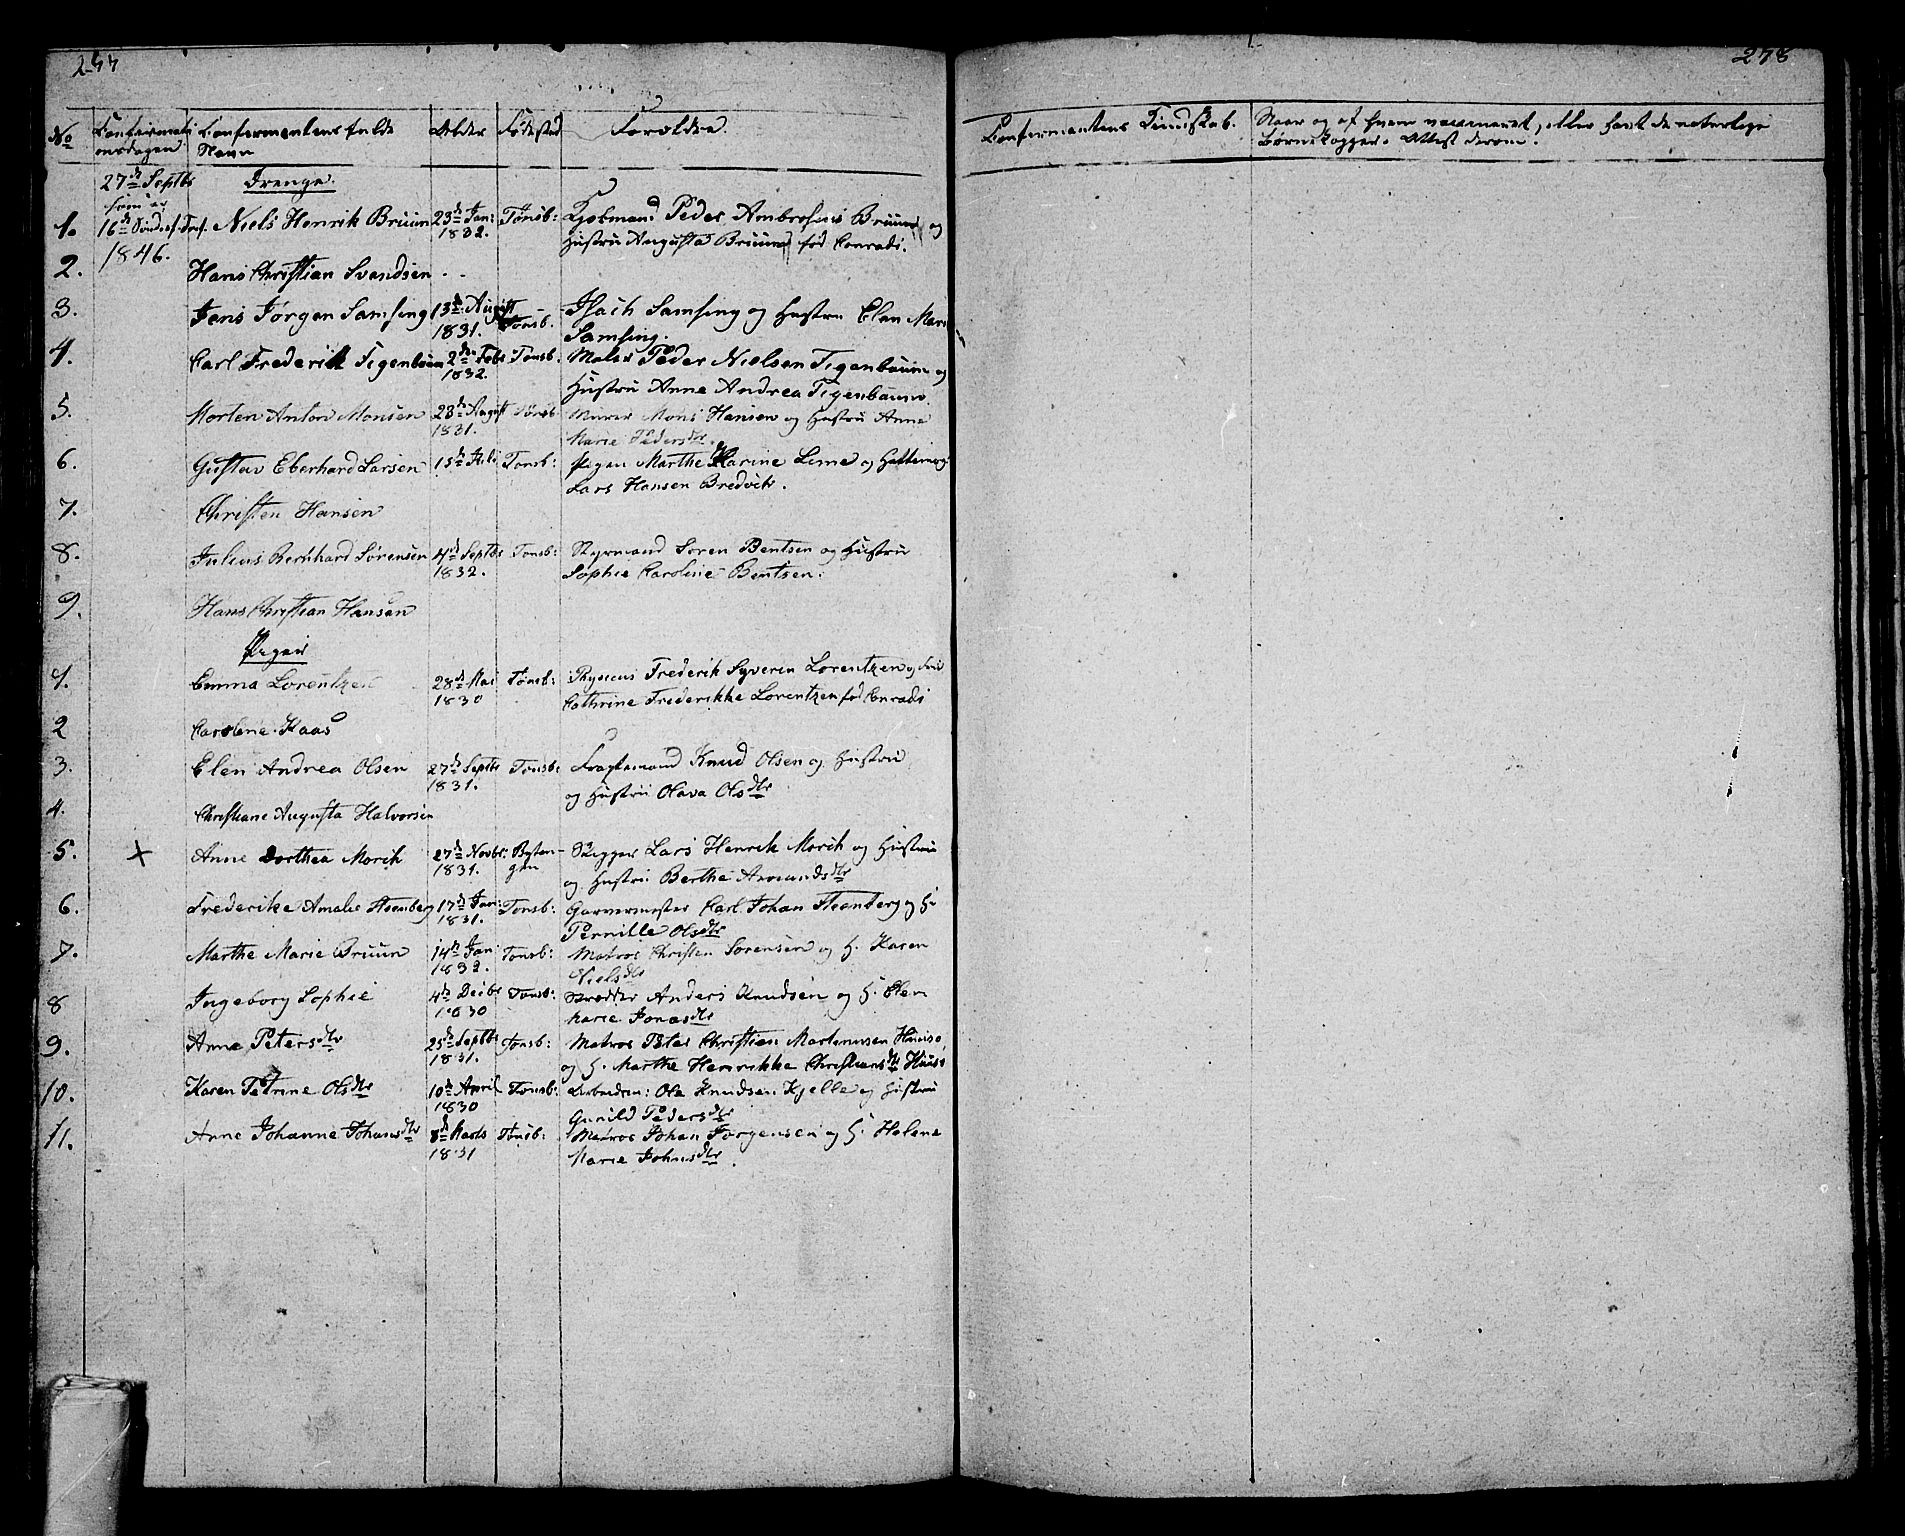 277
278
No
Confirmati
onsdagen
Confirmantens fulde
Navn
Alder
Fødested
Forældre.
Confirmantens Kundskab.
Naar og af hvem vaccineret, eller havt de naturlige
Børnekopper. Attest derom.
27de Septbr
som var
16de Søndag f. Tref.
1846.
Drenge.
1. Niels Henrik Bruun 23de Jan: 1832. Tønsb: Kjøbmand Peder Ambrosius Bruun og
Hustru Augusta Bruun fød Conradi.
2. Hans Christian Svendsen
3. Jens Jørgen Samsing 13de August 1831. Tønsb. Isach Samsing og Hustru Elen Marie
Samsing.
4. Carl Frederik Tigenbaum 2den Febr 1832. Tønsb. Maler Peder Nielsen Tigenbaum og
Hustru Anne Andrea Tigenbaum.
5. Morten Anton Monsen 23de August 1831. Tønsb. Murer Mons Hansen og Hustru Anne
Marie Pedersdtr.
6. Gustav Eberhard Larsen 15de Juli Tønsb: Pigen Marthe Karine Lime og
Lars Hansen Bredvik.
7. Christen Hansen
8. Julius Bernhard Sørensen 4de Septbr 1832. Tønsb: Styrmand Søren Bentsen og Hustru
Sophie Caroline Bentsen.
9. Hans Christian Hansen
Piger
1. Emma Lorentzen 28de Mai 1830 Tønsb: Physicus Frederik Syverin Lorentzen og Frue
Cathrine Frederikke Lorentzen fød Conradi
2 Caroline Haas
3. Elen Andrea Olsen 27de Septbr 1831. Tønsb: Fragtemand Knud Olsen og Hustru
og Hustru Olava Olsdtr
4. Christiane Augusta Halvorsen
5. + Anne Dorthea Morch 27de Novbr: 1831. Byten-
gen Skipper Lars Henrik Morch og Hustru
og Hustru Berthe Amundsdtr
6. Frederike Amalie Steenberg 17de Jan: 1831. Tønsb: Garvermester Carl Johan Steenberg og H.
Pernille Olsdtr
7. Marthe Marie Bruun 14de Jan: 1832. Tønsb: Matros Christen Sørensen og H. Karen
Nielsdtr
8 Ingeborg Sophie 4de Decbr 1830 Tønsb: Skrædder Anders Knudsen og H. Elen
Marie Jonasdtr
9. Anne Petersdtr 25de Septbr 1831. Tønsb: Matros Peter Christian Martinusen
og H. Marthe Henrikke Christiansdtr
10. Karen Petrine Olsdtr 10de April 1830 Tønsb: Arbeidsm: Ole Knudsen Kjelle og Hustru
Gunild Pedersdtr
11. Anne Johanne Johansdtr 8de Marts 1831 Tønsb: Matros Johan Jørgensen og H. Helene
Marie Johnsdtr.